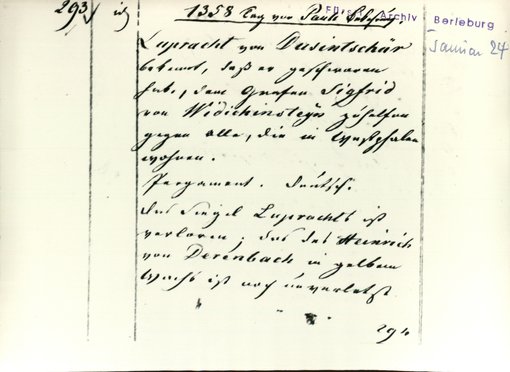 293 1358 Tag von Pauli Bekehrung
Fürstl. Archiv Berleburg
Januar 24
Lupracht von Dusintschär
bekennt, daß er geschworen
habe, dem Grafen Sigfrid
von Widichinsteyn zuhelfen
gegen alle, die in Westphalen
wohnen.
Pergament. deutsch.
das Siegel Luprachts ist
verloren; das des Heinrich
von Derenbach in gelbem
Wachs ist noch unverletzt
294